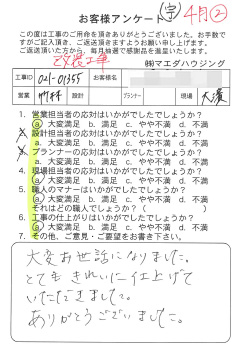 お客様アンケート 宇 4月②
この度は工事のご用命を頂きありがとうございました。お手数で
すがご記入頂き、ご返送頂きますようお願い申し上げます。
ご返送頂いた方から、毎月抽選で感謝品を進呈いたします。
改装工事 ㈱マエダハウジング
工事ID 021-01355 お客様名
営業 竹林 設計 プランナー 現場 大濱
1. 営業担当者の応対はいかがでしたでしょうか?
ⓐ大変満足 b. 満足 c. やや不満 d. 不満
2. 設計担当者の応対はいかがでしたでしょうか?
a 大変満足 b. 満足 c. やや不満 d. 不満
3. プランナーの応対はいかがでしたでしょうか?
a 大変満足 b. 満足 c. やや不満 d. 不満
4. 現場担当者の応対はいかがでしたでしょうか?
ⓐ大変満足 b. 満足 c. やや不満 d. 不満
5. 職人のマナーはいかがでしたでしょうか?
ⓐ大変満足 b. 満足 c. やや不満 d. 不満
それはどの職人でしょうか(
6. 工事の仕上がりはいかがでしたでしょうか?
ⓐ大変満足 b. 満足 c. やや不満 d. 不満
7. その他、ご意見・ご要望をお書き下さい。
大変お世話になりました。
とてもきれいに仕上げて
いただきました。
ありがとうございました。